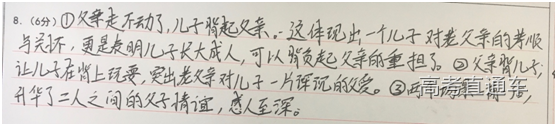 8.(6分)①父亲走不动了,儿子背起父亲。这体现出一个儿子对老父亲的孝顺
与关怀,更是表明儿子长大成人,可以背负起父亲的重担了。②父亲背儿子,
让儿子在背上玩耍,突出老父亲对儿子一片深沉的父爱。③两
升华了二人之间的父子情谊,感人至深。
高考直通车